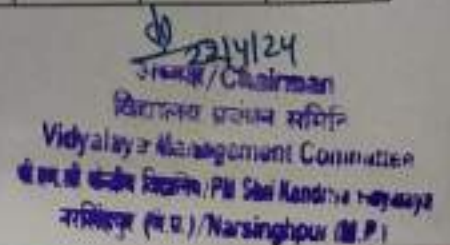 22/4/24
अध्यक्ष/Chairman
विद्यालय प्रबंधन समिति
Vidyalaya Management Committee
पी.एम.श्री केन्द्रीय विद्यालय/PM Shri Kendriya Vidyalaya
नरसिंहपुर (म.प्र.)/Narsinghpur (M.P.)